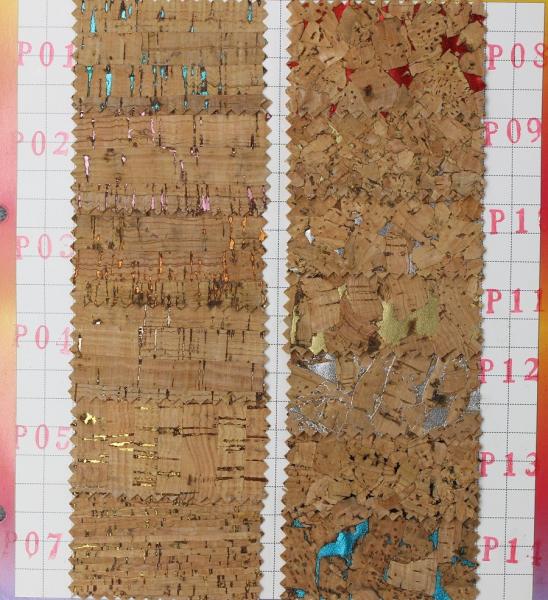 P01
P02
P03
P04
P05
P07
P08
P09
P1
P11
P12
P13
P14